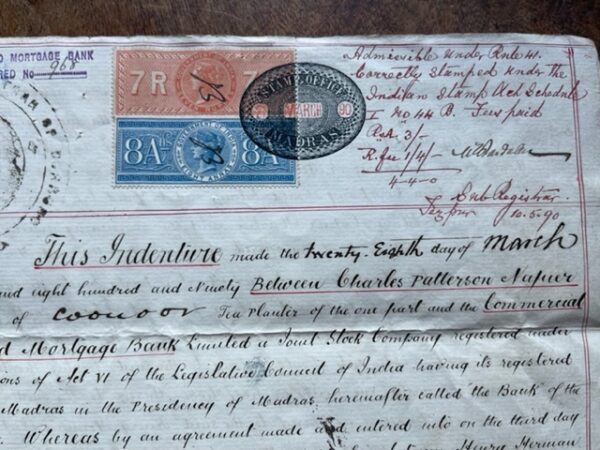 D MORTGAGE BANK
RED No 968
7 R 7
8 As GOVERNMENT OF INDIA 8 As
EIGHT ANNAS
STAMP OFFICE
MARCH 90
MADRAS
Admissible under Rule 41.
Correctly stamped under the
Indian Stamp Act Schedule
I No 44 B. Fees paid
Rs A 3/-
R. fee 1/4/-
4-4-0
Sub Registrar
Tezpur 10.5.90
This Indenture made the twenty-Eighth day of March
and eight hundred and Ninety Between Charles Patterson Napier
of Coonoor Tea Planter of the one part and the Commercial
d Mortgage Bank Limited a Joint Stock Company registered under
ons of Act VI of the Legislative Council of India having its registered
Madras in the Presidency of Madras, hereinafter called "the Bank" of the
Whereas by an agreement made and entered into on the third day
Henry Herman